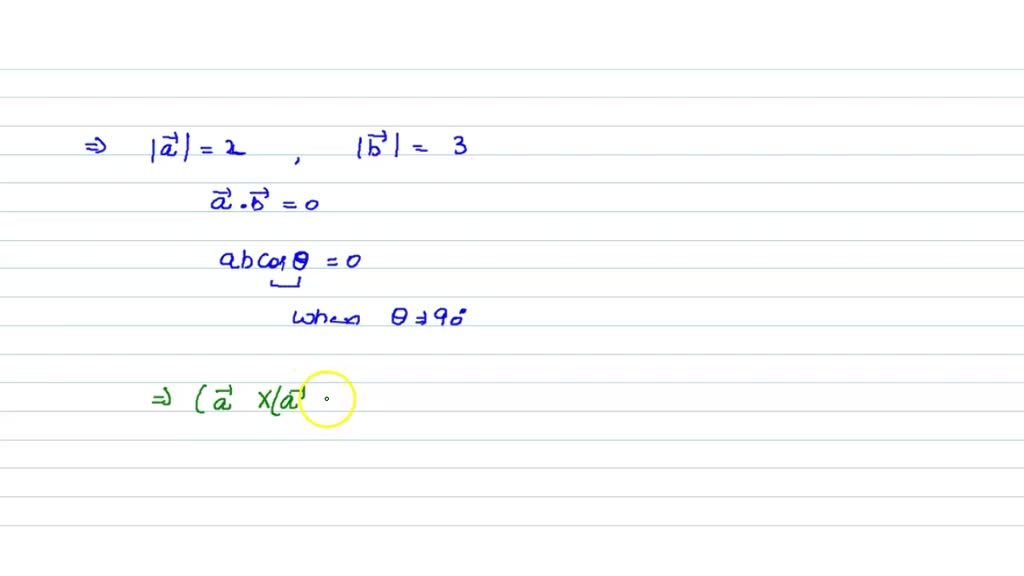 ⇒ |a⃗| = 2 , |b⃗| = 3
a⃗ . b⃗ = 0
ab cos θ = 0
when θ ⇒ 90°
⇒ (a⃗ × (a⃗